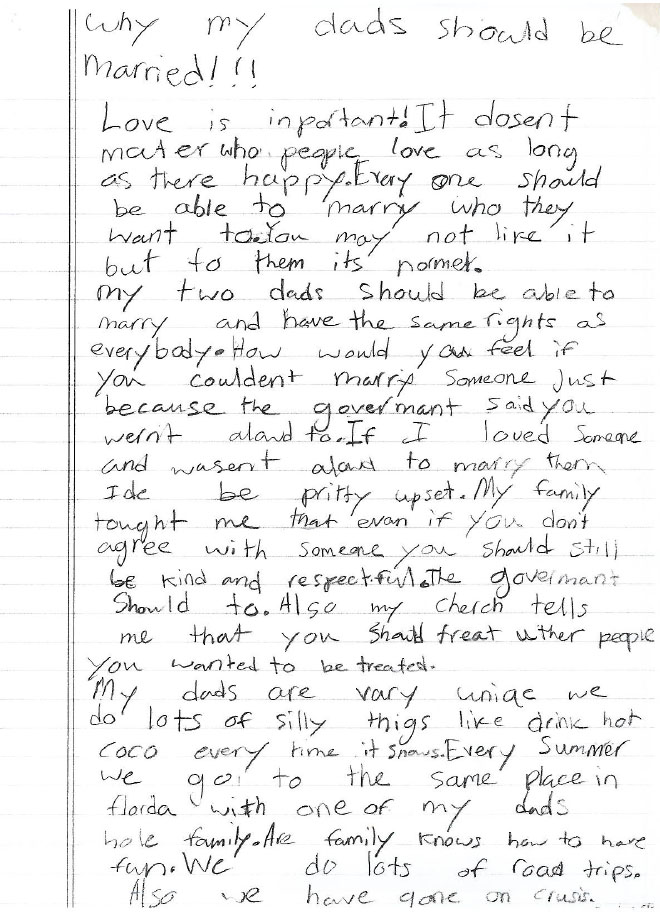 Why my dads should be
Married!!!
Love is inportant! It dosent
mater who people love as long
as there happy. Every one should
be able to marry who they
want to. You may not like it
but to them its normel.
My two dads should be able to
marry and have the same rights as
everybody. How would you feel if
you couldent marry someone Just
because the goverment said you
wernt aloud to. If I loved Someone
and wasent aloud to marry them
Ide be pritty upset. My family
tought me that evan if you dont
agree with someone you should still
be kind and respectful. The goverment
Should to. Also my cherch tells
me that you Should treat uther people
you wanted to be treated.
My dads are vary uniqe we
do lots of silly thigs like drink hot
coco every time it snows. Every Summer
we go to the same place in
florda with one of my dads
hole family. Are family knows how to have
fun. We do lots of road trips.
Also we have gone on crusis.